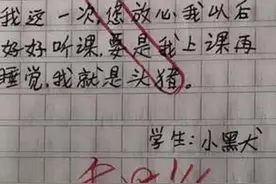 我这一次，您放心我以后
好好听课，要是我上课再
睡觉，我就是头猪。
学生：小黑犬